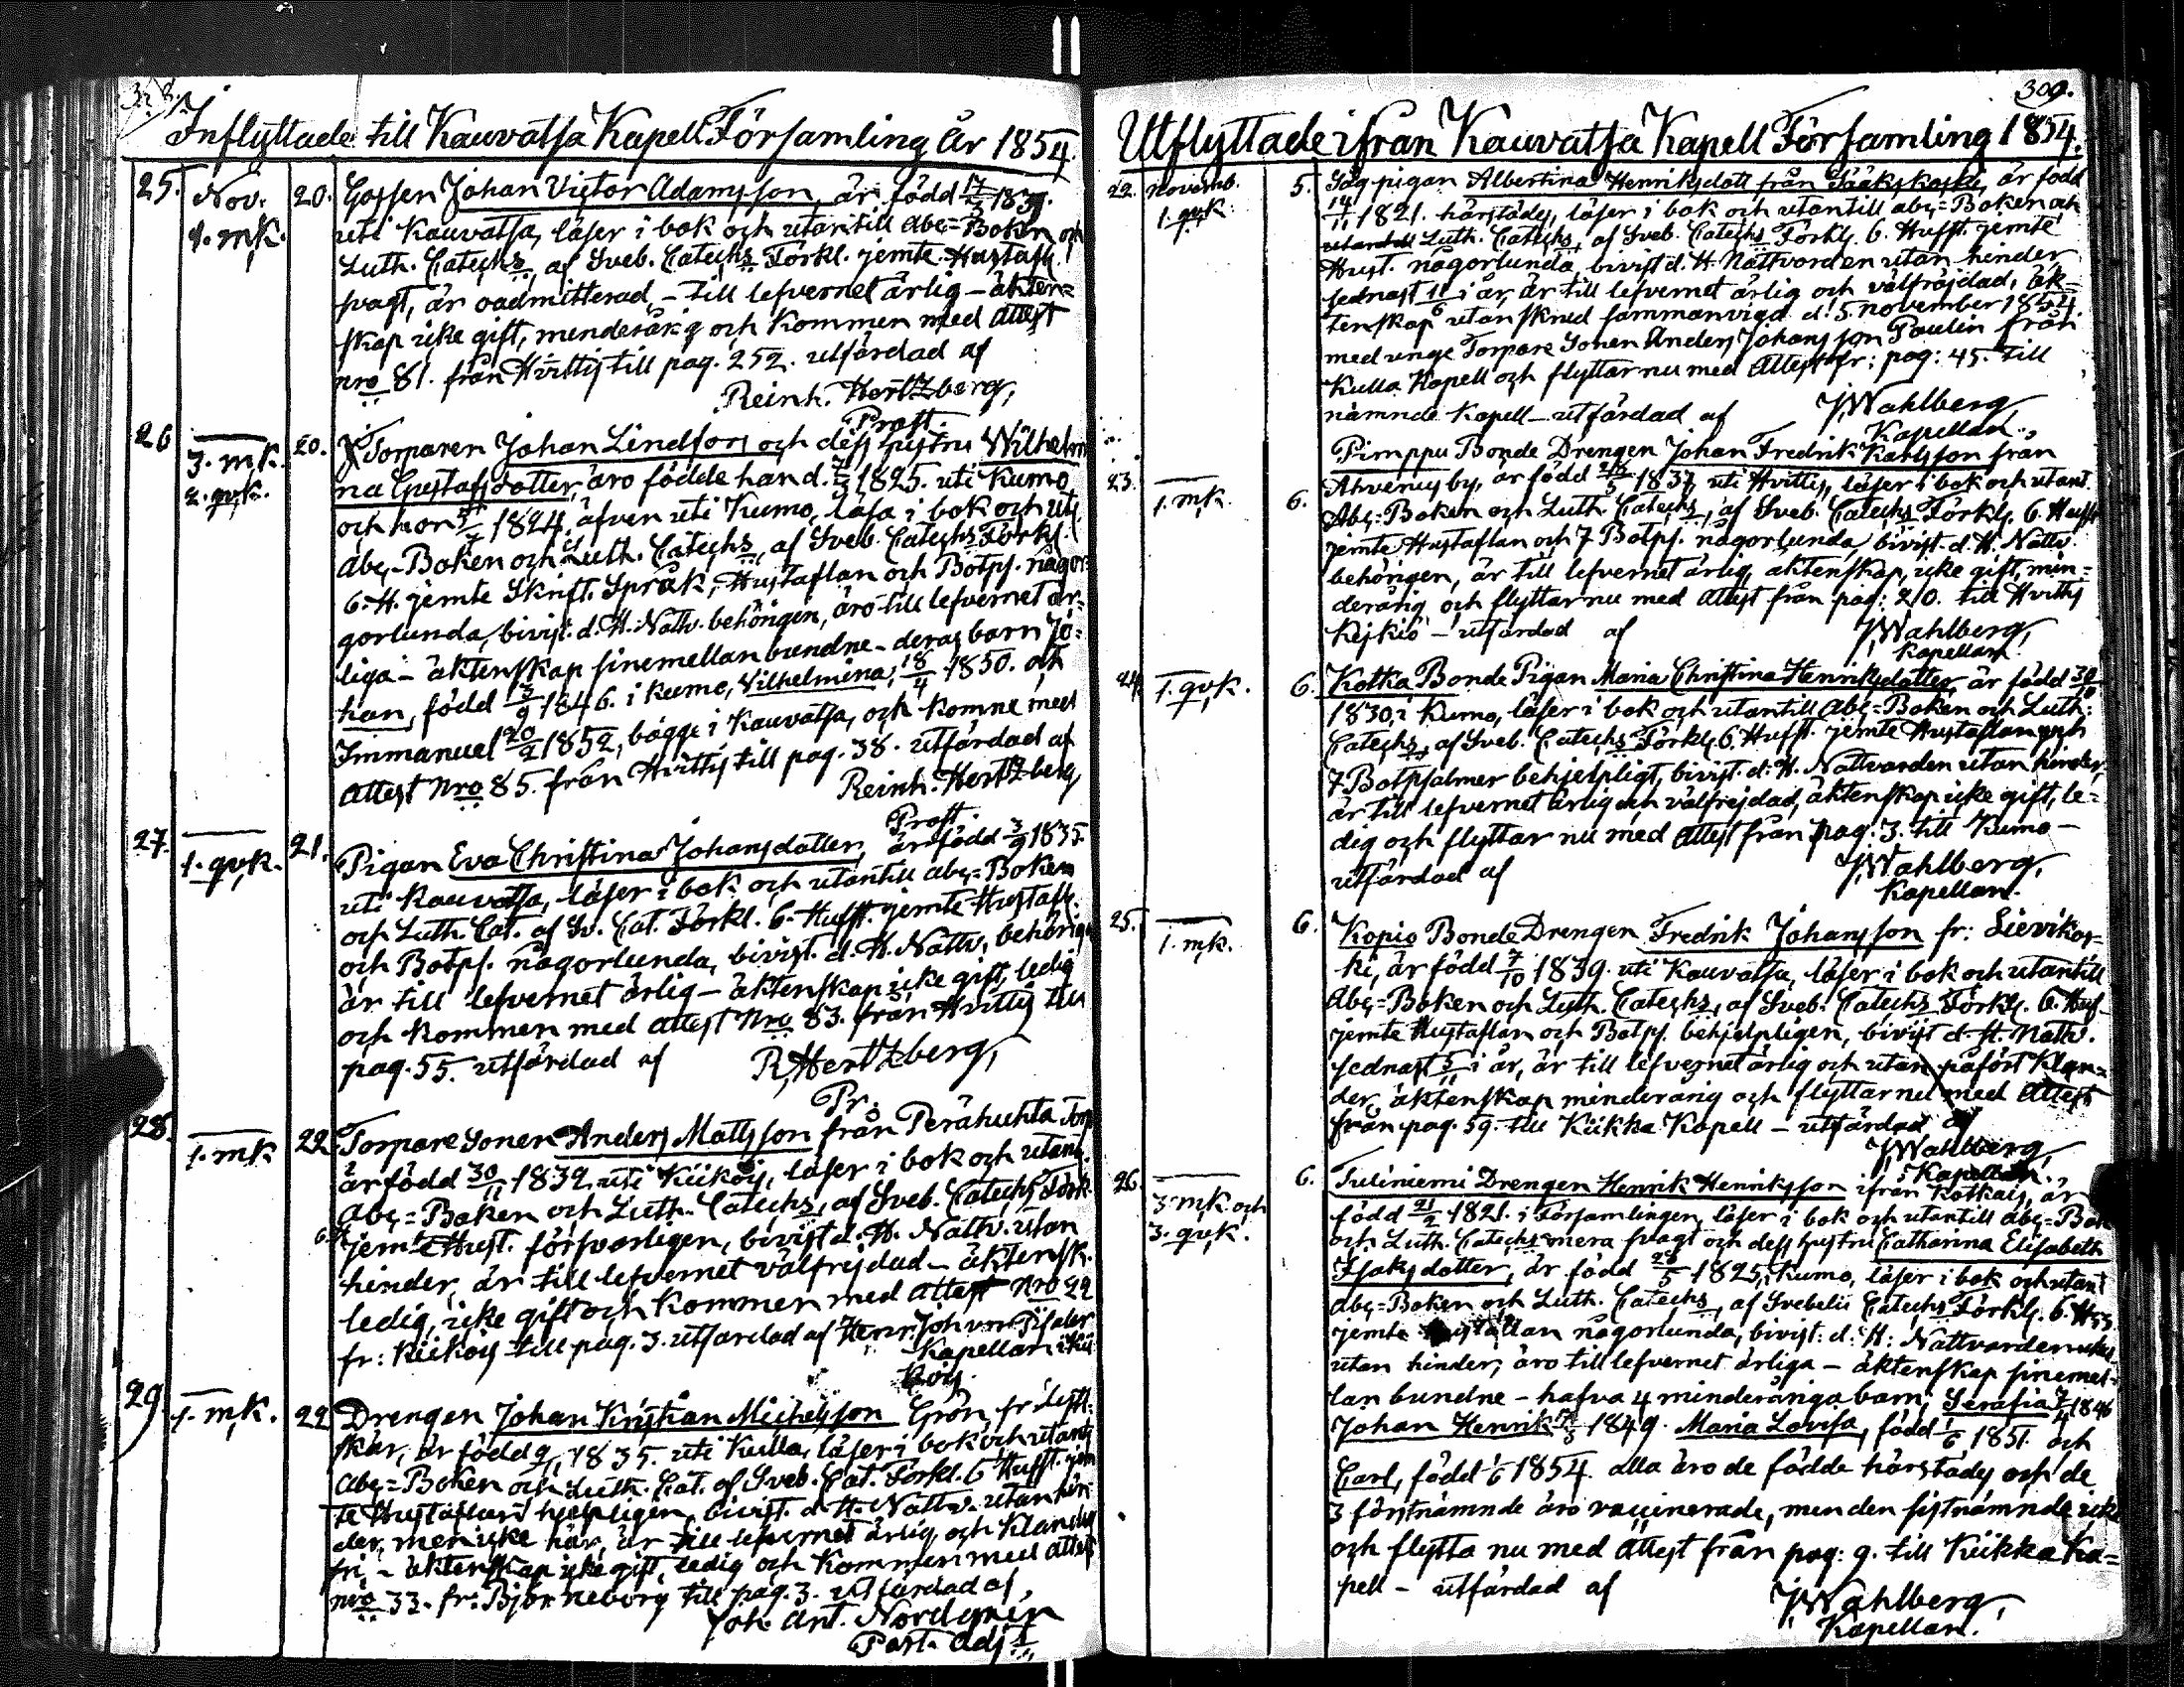 Inflyttade till Kauvatsa Kapell Församling År 1854.
25. Nov. 20. Gossen Johan Victor Adamsson, är född 1839.
1. mk. uti Kauvatsa, läser i bok och utantill Abc=Boken och
Luth. Cateches, af Sveb. Cateches Förkl. jemte Hustafl.
svagt, är oadmitterad, - till lefvernet ärlig - äkten=
skap icke gift, minderårig och kommen med Attest
nro 81. från Hvittis till pag. 252. utfärdad af
Reinh. Hertzberg,
Prost.
26 20. Torparen Johan Lindfors och dess hustru Wilhelmi
3. mk. na Gustafsdotter, äro födde han d. 1825. uti Kumo
2. qvk. och hon 1824, äfven uti Kumo, läsa i bok och ut.
Abc-Boken och Luth. Cateches, af Sveb. Cateches Förkl.
6. H. jemte Skrift. Språk, Hustaflan och Botps. någor=
gorlunda, bivist. d. H. Nattv. behörigen, äro till lefvernet är=
liga - äktenskap sinemellan bundne - deras barn Jo=
han, född 3/9 1846. i Kumo, Vilhelmina, 18/4 1850. och
Immanuel 20/2 1852, bägge i Kauvatsa, och komne med
Attest Nro 85. från Hvittis till pag. 38. utfärdad af
Reinh. Hertzberg
Prost.
27. 21. Pigan Eva Christina Johansdotter, är född 3/9 1835.
1. qvk. uti Kauvatsa, läser i bok och utantill Abc=Boken
och Luth. Cat. af Sv. Cat. Förkl. 6. Hufst. jemte Hustafl.
och Botps. någorlunda, bivist. d. H. Nattv. behörig
är till lefvernet ärlig - äktenskap icke gift, ledig
och kommen med Attest Nro 83. från Hvittis till
pag. 55. utfärdad af R. Hertzberg,
Pr.
28. 22. Torpare Sonen Anders Matsson från Perähuhta Torp
1. mk är född 30/11 1832. uti Kiikois, läser i bok och utant.
Abc=Boken och Luth. Cateches, af Sveb. Cateches Förk.
6. jemte Hust. försvarligen, bivist d. H. Nattv. utan
hinder, är till lefvernet välfrejdad - äktensk.
ledig, icke gift och kommen med Attest Nro 22
fr: Kiikois till pag. 3. utfärdad af Henr. Johan
Kapellan i Kii
kois.
29. 22 Drengen Johan Kristian Michelsson Grön, fr:
1. mk. skär, är född 1835. uti Kulla, läser i bok och utant.
Abc=Boken och Luth. Cat. af Sveb. Cat. Förkl. 6 Hufst. jem
te Hustaflan hjelpligen, bivist. d. H. Nattv. utan hin
der, men icke här, är till lefvernet ärlig och klander
fri, - äktenskap icke gift, ledig och kommen med Attest
nro 33. fr: Björneborg till pag. 3. utfärdad af,
Joh. Ant. Nordgren
Past. Adj.
309.
Utflyttade ifrån Kauvatsa Kapell Församling 1854.
22. Novemb. 5. Säg pigan Albertina Henriksdott från Sääkskoski, är född
1. qvk. 1821. härstädes, läser i bok och utantill Abc=Boken och
Luth. Cateches, af Sveb. Cateches Förkl. 6. Hufst. jemte
Hust. någorlunda, bivist d. H. Nattvorden utan hinder
sednast i år, är till lefvernet ärlig och välfräjdad, äk=
tenskap utan skned sammanvigd d. 5. November 1854
med unge Torpare Sonen Anders Johansson Paulin från
Kulla Kapell och flyttar nu med Attest fr: pag: 45. till
nämnde Kapell - utfärdad af J. Wahlberg,
Kapellan.
23. Pimppu Bonde Drengen Johan Fredrik Karlsson från
1. mk. 6. Ahvenus by, är född 1837. uti Hvittis, läser i bok och utant.
Abc=Boken och Luth. Cateches, af Sveb. Cateches Förkl. 6. Hufst
jemte Hustaflan och 7 Botps. någorlunda, bivist. d. H. Nattv.
behörigen, är till lefvernet ärlig, äktenskap, icke gift, min=
derårig och flyttar nu med Attest från pag: 210. till Hvittis
Keikiö - utfärdad af J. Wahlberg,
Kapellan
24. 1. qvk. 6. Kotka Bonde Pigan Maria Christina Henriksdotter, är född
1830, i Kumo, läser i bok och utantill Abc=Boken och Luth:
Cateches, af Sveb. Cateches Förkl. 6. Hufst. jemte Hustaflan och
7 Botpsalmer behjelpligt, bivist. d: H. Nattvarden utan hinder,
är till lefvernet ärlig och välfrejdad, äktenskap icke gift, le=
dig och flyttar nu med Attest från pag. 3. till Kumo -
utfärdad af J. Wahlberg,
Kapellan.
25. 1. mk. 6. Kopio Bonde Drengen Fredrik Johansson fr: Lievikos=
ki, är född 7/10 1839. uti Kauvatsa, läser i bok och utantill
Abc=Boken och Luth. Cateches, af Sveb. Cateches Förkl. 6. Huf
jemte Hustaflan och Botps. behjelpligen, bivist d. H. Nattv.
sednast i år, är till lefvernet ärlig och utan påfört Klan=
der, äktenskap minderårig och flyttar nu med Attest
från pag. 59. till Kiikka Kapell - utfärdad af
J. Wahlberg,
Kapellan.
26. 6. Tuliniemi Drengen Henrik Henriksson ifrån Kotkais, är
3. mk. och född 21/2 1821. i Församlingen, läser i bok och utantill Abc=Bok
3. qvk. och Luth. Cateches mera svagt och dess hustru Catharina Elisabeth
Isaksdotter, är född 1825, i Kumo, läser i bok och utant
Abc=Boken och Luth. Cateches, af Svebelii Cateches Förkl. 6. H
jemte Hustaflan någorlunda, bivist. d. H: Nattvarden
utan hinder, äro till lefvernet ärliga - äktenskap sinemel=
lan bundne - hafva 4 minderåriga barn, Serafia 1846
Johan Henrik 1849. Maria Lovisa, född 1851. och
Carl, född 1854. alla äro de födde härstädes och de
3 förstnämnde äro vaccinerade, men den sistnämnde icke
och flytta nu med Attest från pag: 9. till Kiikka Ka=
pell - utfärdad af J. Wahlberg,
Kapellan.